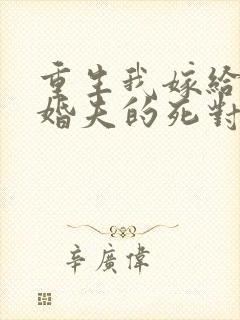 重生我嫁給
婚夫的死對
辛廣偉